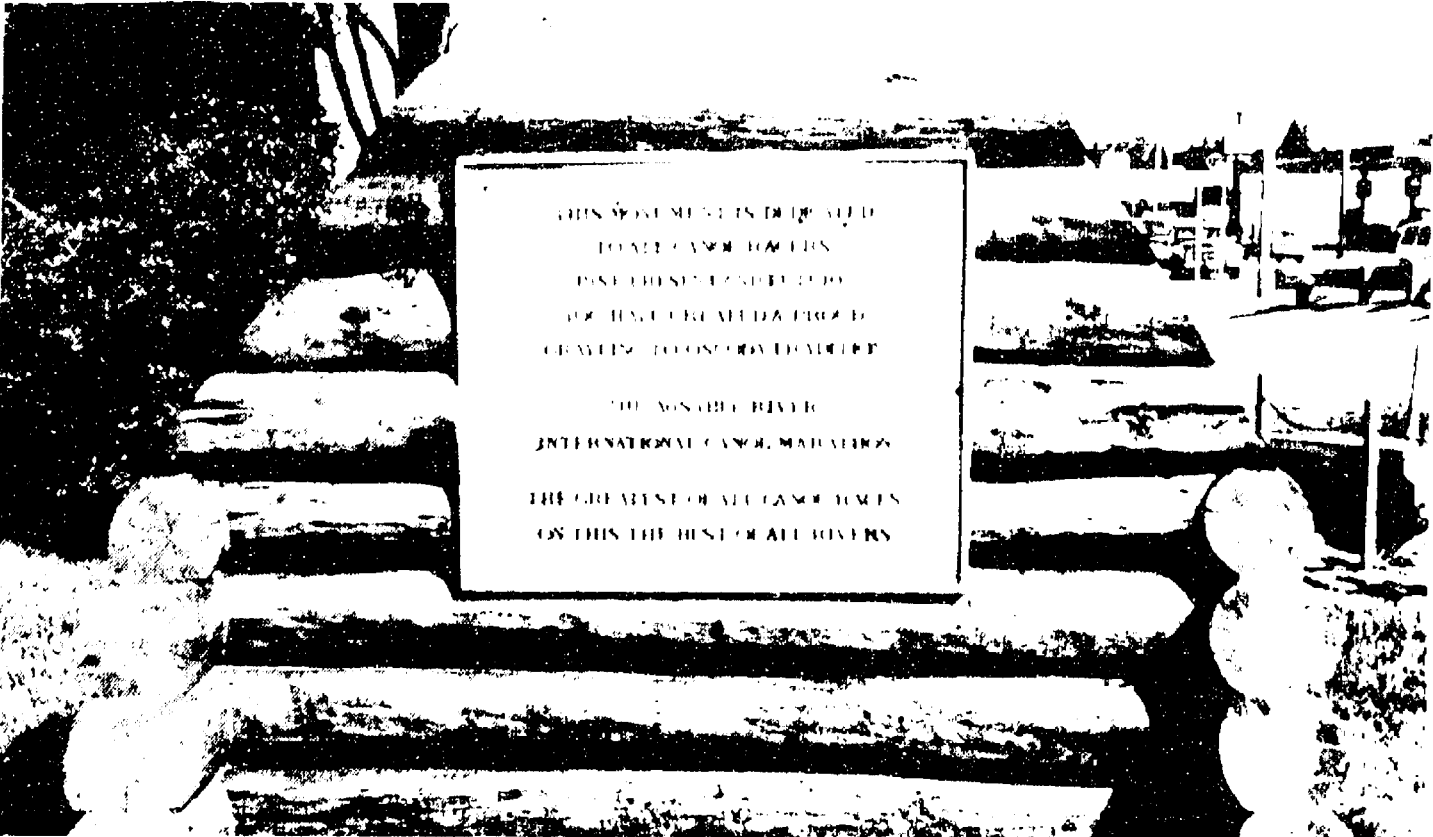 THIS MONUMENT IS DEDICATED
TO ALL CANOE RACERS
PAST PRESENT AND FUTURE
YOU HAVE CREATED A PROUD
GRAYLING TO OSCODA TRADITION
THE AUSABLE RIVER
INTERNATIONAL CANOE MARATHON
THE GREATEST OF ALL CANOE RACES
ON THIS THE BEST OF ALL RIVERS